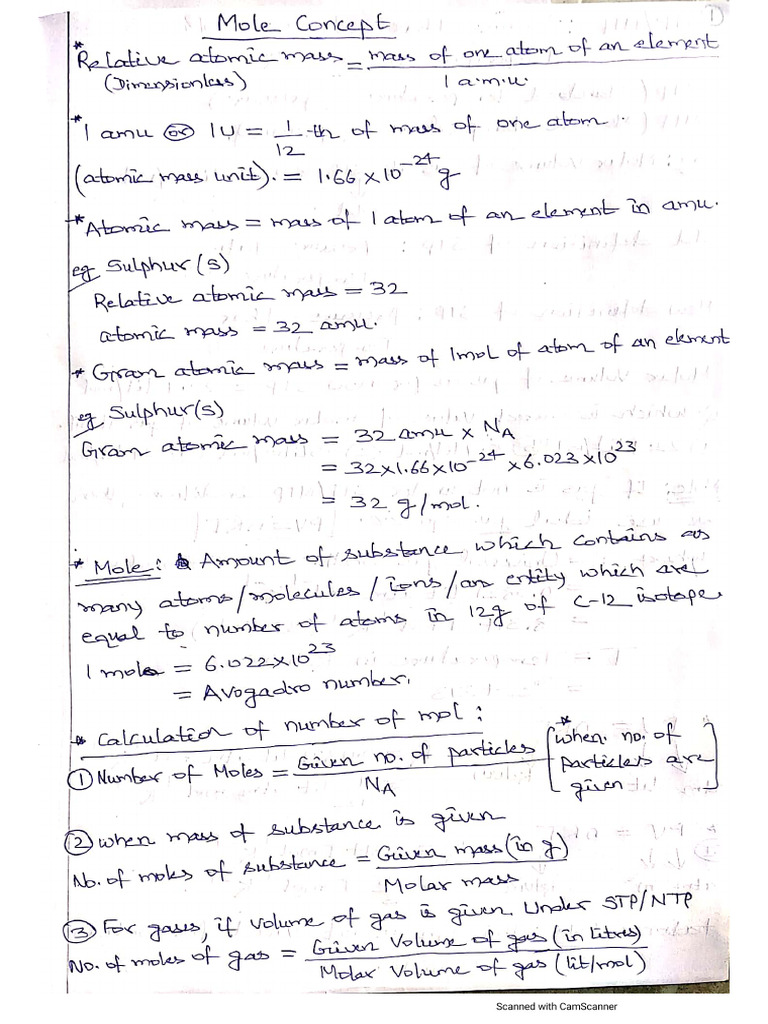 Mole Concept
1
* Relative atomic mass = mass of one atom of an element / 1 a.m.u.
(Dimensionless)
* 1 amu or 1U = 1/12 -th of mass of one atom
(atomic mass unit). = 1.66 × 10^-24 g
* Atomic mass = mass of 1 atom of an element in amu.
eg Sulphur (S)
Relative atomic mass = 32
atomic mass = 32 amu.
* Gram atomic mass = mass of 1mol of atom of an element
eg Sulphur(S)
Gram atomic mass = 32 amu × NA
= 32×1.66×10^-24 × 6.023×10^23
= 32 g/mol.
* Mole: Amount of substance which contains as
many atoms/molecules/ions/an entity which are
equal to number of atoms in 12g of C-12 isotope.
1 mole = 6.022×10^23
= Avogadro number.
* Calculation of number of mol:
① Number of Moles = Given no. of particles / NA [* when no. of particles are given]
② when mass of substance is given
No. of moles of substance = Given mass (in g) / Molar mass
③ For gases, if volume of gas is given under STP/NTP
No. of moles of gas = Given Volume of gas (in litres) / Molar Volume of gas (lit/mol)
Scanned with CamScanner